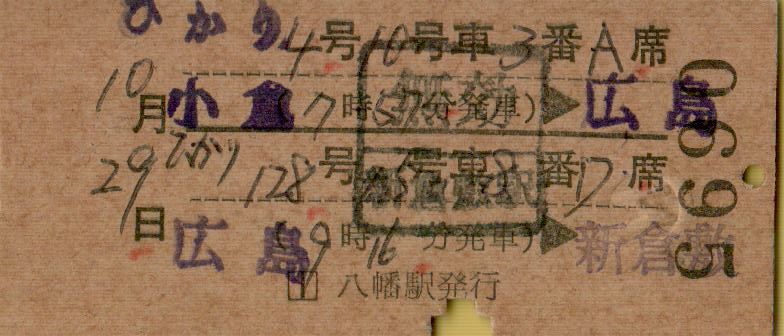 ひかり 4号 10号車 3番 A席
10月 小倉 (7時57分発車) ▶ 広島
29日 ひかり 128号 号車 8番 D席
広島 (9時16分発車) ▶ 新倉敷
八幡駅発行
0695